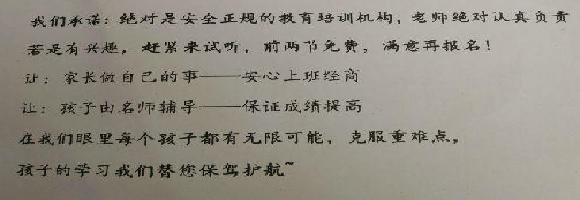 我们承诺：绝对是安全正规的教育培训机构，老师绝对认真负责
若是有兴趣，赶紧来试听，前两节免费，满意再报名！
让：家长做自己的事——安心上班经商
让：孩子由名师辅导——保证成绩提高
在我们眼里每个孩子都有无限可能，克服重难点，
孩子的学习我们替您保驾护航~